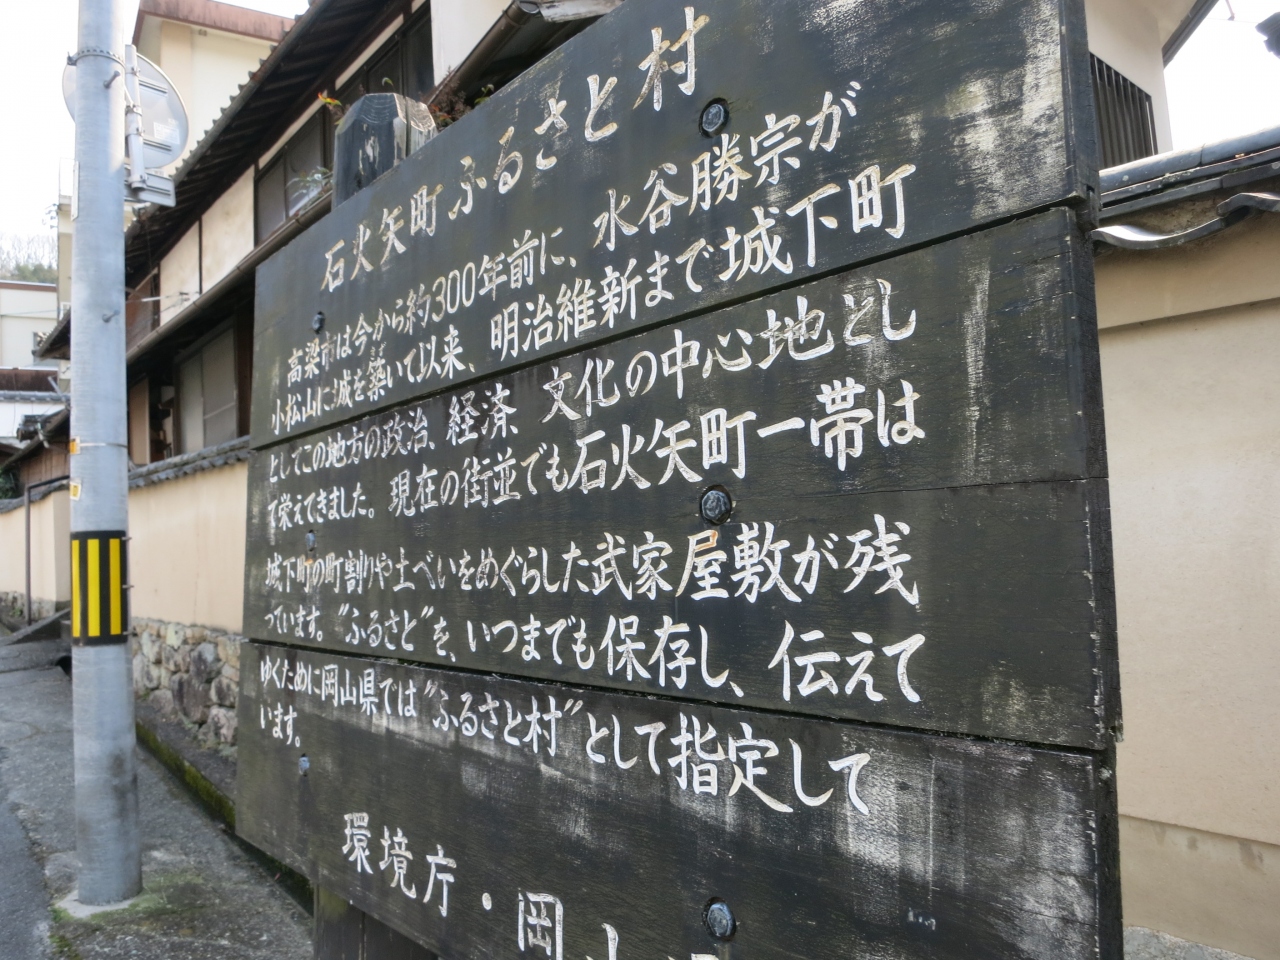 石火矢町ふるさと村
高梁市は今から約300年前に、水谷勝宗が
小松山に城を築いて以来、明治維新まで城下町
としてこの地方の政治、経済、文化の中心地とし
て栄えてきました。現在の街並でも石火矢町一帯は
城下町の町割りや土べいをめぐらした武家屋敷が残
っています。"ふるさと"を、いつまでも保存し、伝えて
ゆくために岡山県では"ふるさと村"として指定して
います。
環境庁・岡山